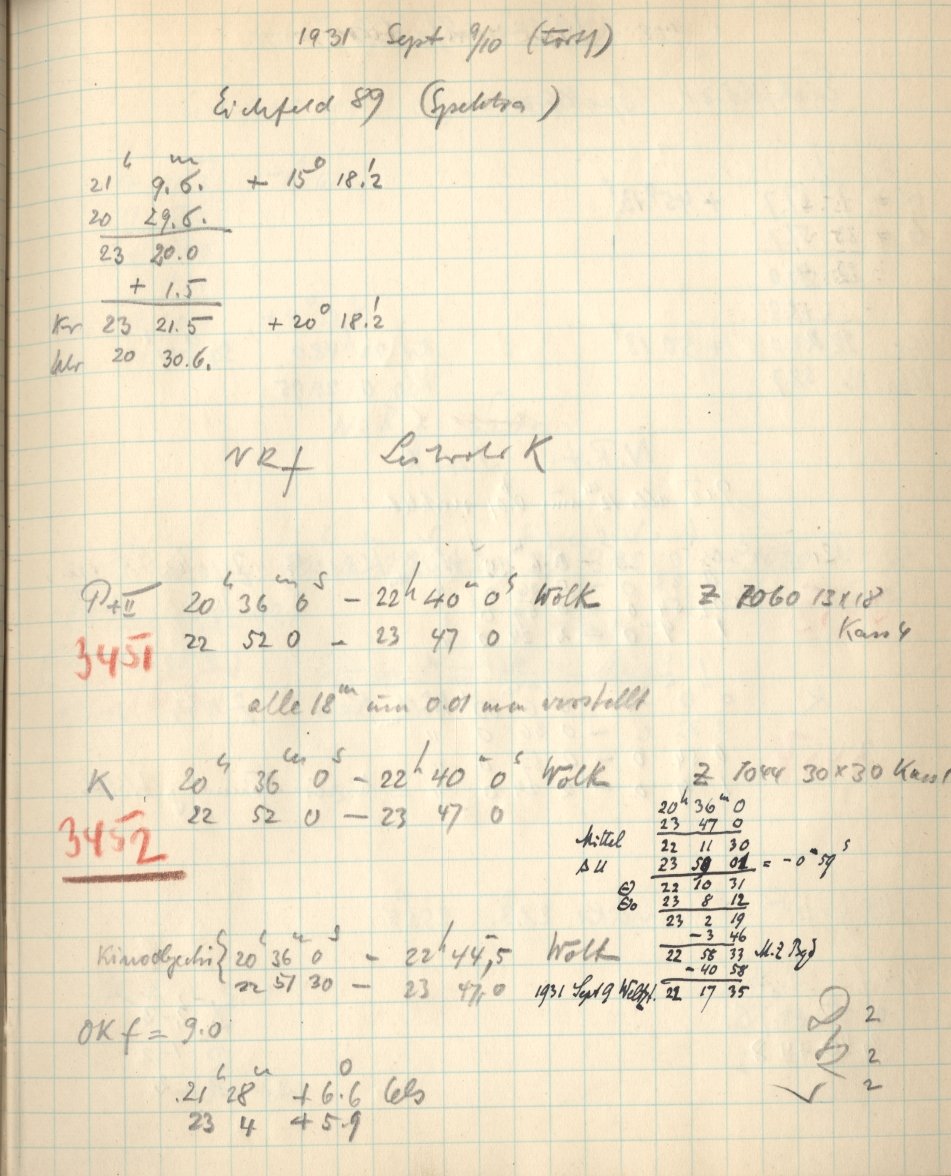 1931 Sept 9/10 (Forts)
Eichfeld 89 (Spektra)
21ʰ 9.6ᵐ + 15° 18.'2
20 29.6.
23 20.0
+ 1.5
Kr 23 21.5 + 20° 18.'2
Uhr 20 30.6.
NRf Leitrohr K
P+II 20ʰ 36ᵐ 0ˢ – 22ʰ 40ᵐ 0ˢ Wolk Z 7060 13x18
3451 22 52 0 – 23 47 0 Kass 4
alle 18ᵐ um 0.01 mm verstellt
K 20ʰ 36ᵐ 0ˢ – 22ʰ 40ᵐ 0ˢ Wolk Z 7044 30x30 Kass 1
3452 22 52 0 – 23 47 0
20ʰ 36ᵐ 0
23 47 0
Mittel 22 11 30
ΔU 23 59 01 = -0ᵐ 59ˢ
Θ 22 10 31
Θ₀ 23 8 12
23 2 19
-3 46
22 58 33 M.Z Bgd
-40 58
1931 Sept 9 Weltzt. 22 17 35
Kinoobjectiv { 20ʰ 36ᵐ 0ˢ – 22ʰ 44,5 Wolk
22 51 30 – 23 47,0
OKf = 9.0
21ʰ 28ᵐ + 6.°6 Cels
23 4 + 5.9
2
2
2